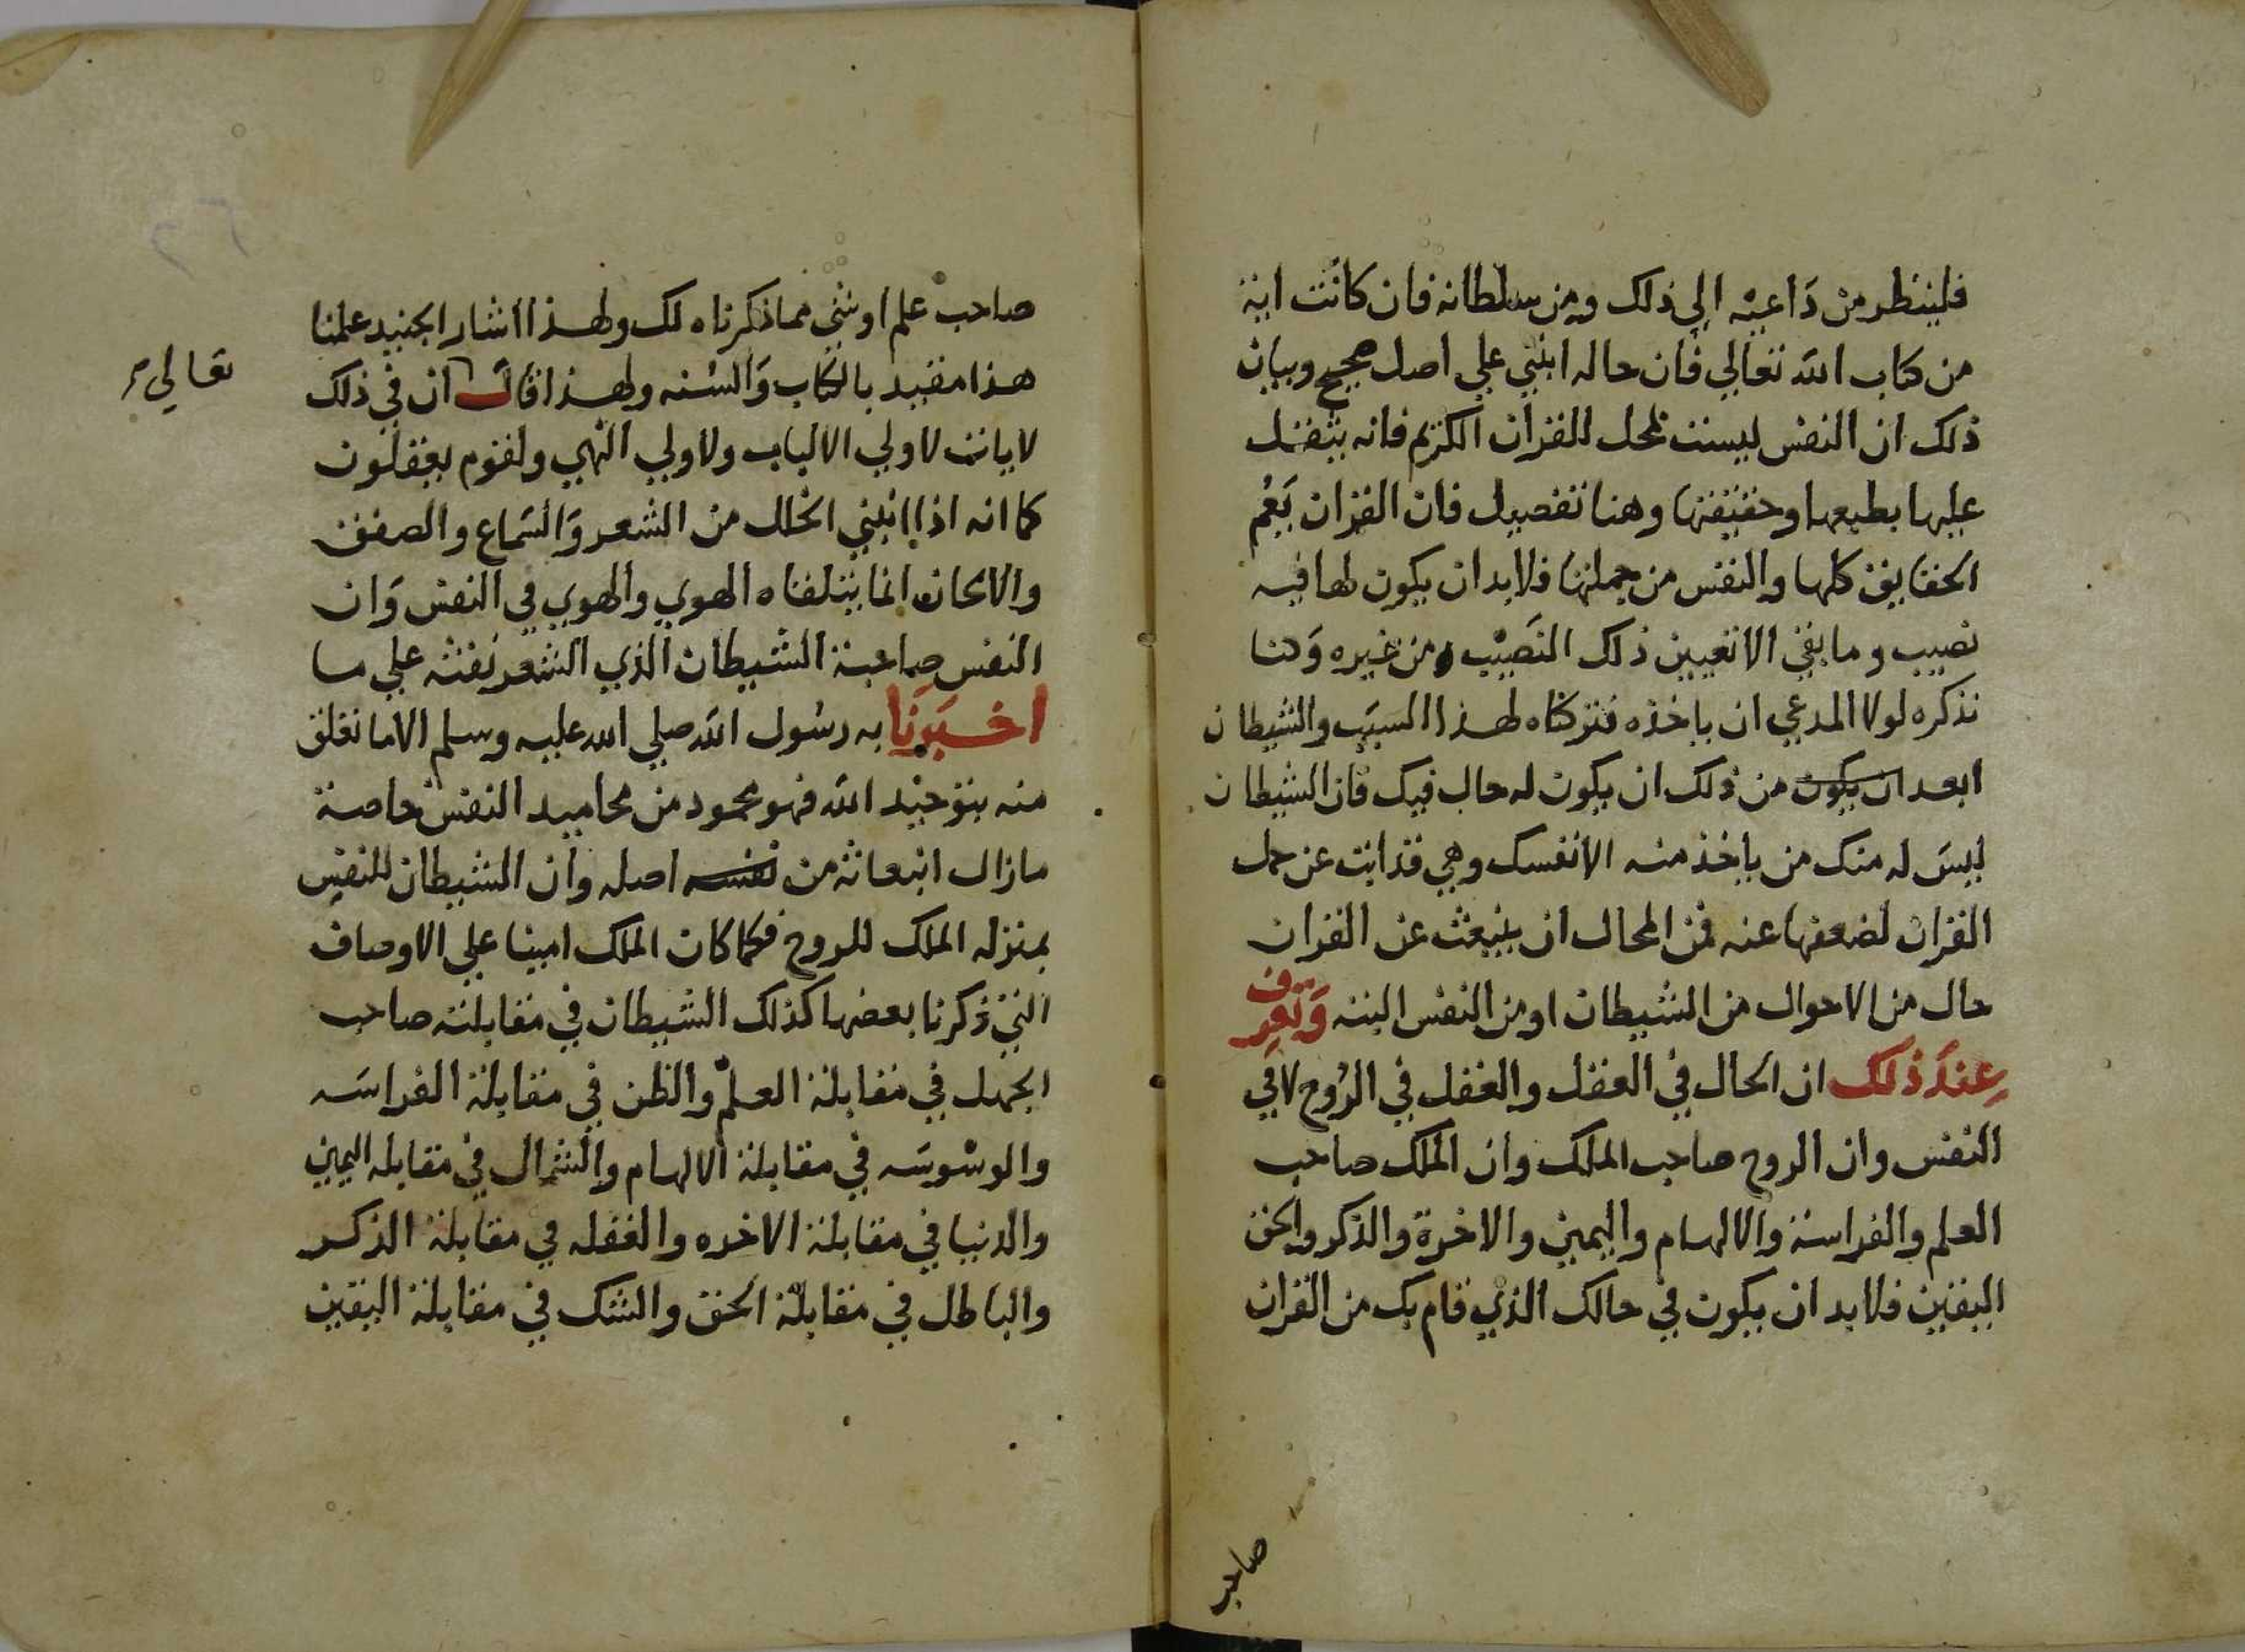 فلينظر من داعيه الي ذلك ومن سلطانه فان كانت اية
من كتاب الله تعالي فان حاله ابنني علي اصل صحيح وبيان
ذلك ان النفس ليست بمحل للقران الكريم فانه يثقل
عليها بطبعها وحقيقتها وهنا تفصيل فان القران يَعُم
الحقايق كلها والنفس من جملتها فلابد ان يكون لها فيه
نصيب وما بقي الا تعيين ذلك النصيب من غيره وَكنا
نذكره لولا المدعي ان ياخذه فتركناه لهذا السبب والشيطان
ابعد ان يكون من ذلك ان يكون له حال فيك فان الشيطان
ليسَ له منك من ياخذ منه الا نفسك وهي قد ابت عن حمل
القران لضعفها عنه فمن المحال ان ينبعث عن القران
حال من الاحوال من الشيطان او من النفس البته وَتعرف
عِندَ ذلك ان الحال في العقل والعقل في الرُوح لا في
النفس وان الروح صاحب الملك وان الملك صاحب
العلم والفراسة والالهام واليمين والاخرة والذكر والحق
اليقين فلابد ان يكون في حالك الذي قام بك من القران
صاحب
صاحب علم او شي مما ذكرناه لك ولهذا اشار الجنيد علمنا
هذا مقيد بالكتاب وَالسُنه ولهذا قال ان في ذلك
تعالي
لايات لاولي الالباب ولاولي النهي ولقوم يعقلون
كما انه اذا انبني الحال من الشعر وَالسَماع والصفق
والالحان انما يتلقاه الهوي والهوي في النفس وَان
النفس صاحبة الشيطان الذي الشعر نفثه علي ما
اخبرَنا به رسُول الله صلي الله عليه وسلم الا ما تعلق
منه بتوحيد الله فهو محمود من محاميد النفس خاصة
ما زال انبعاثه من نفسه اصله وان الشيطان للنفس
بمنزله الملك للروح فكما كان الملك امينا علي الاوصاف
التي ذكرنا بعضها كذلك الشيطان في مقابلته صاحب
الجهل في مقابلة العلم والظن في مقابلة الفراسَه
والوسْوسَه في مقابلة الالهام والشمال في مقابله اليمين
والدنيا في مقابلة الاخره والغفله في مقابلة الذكر
والباطل في مقابلة الحق والشك في مقابلة اليقين